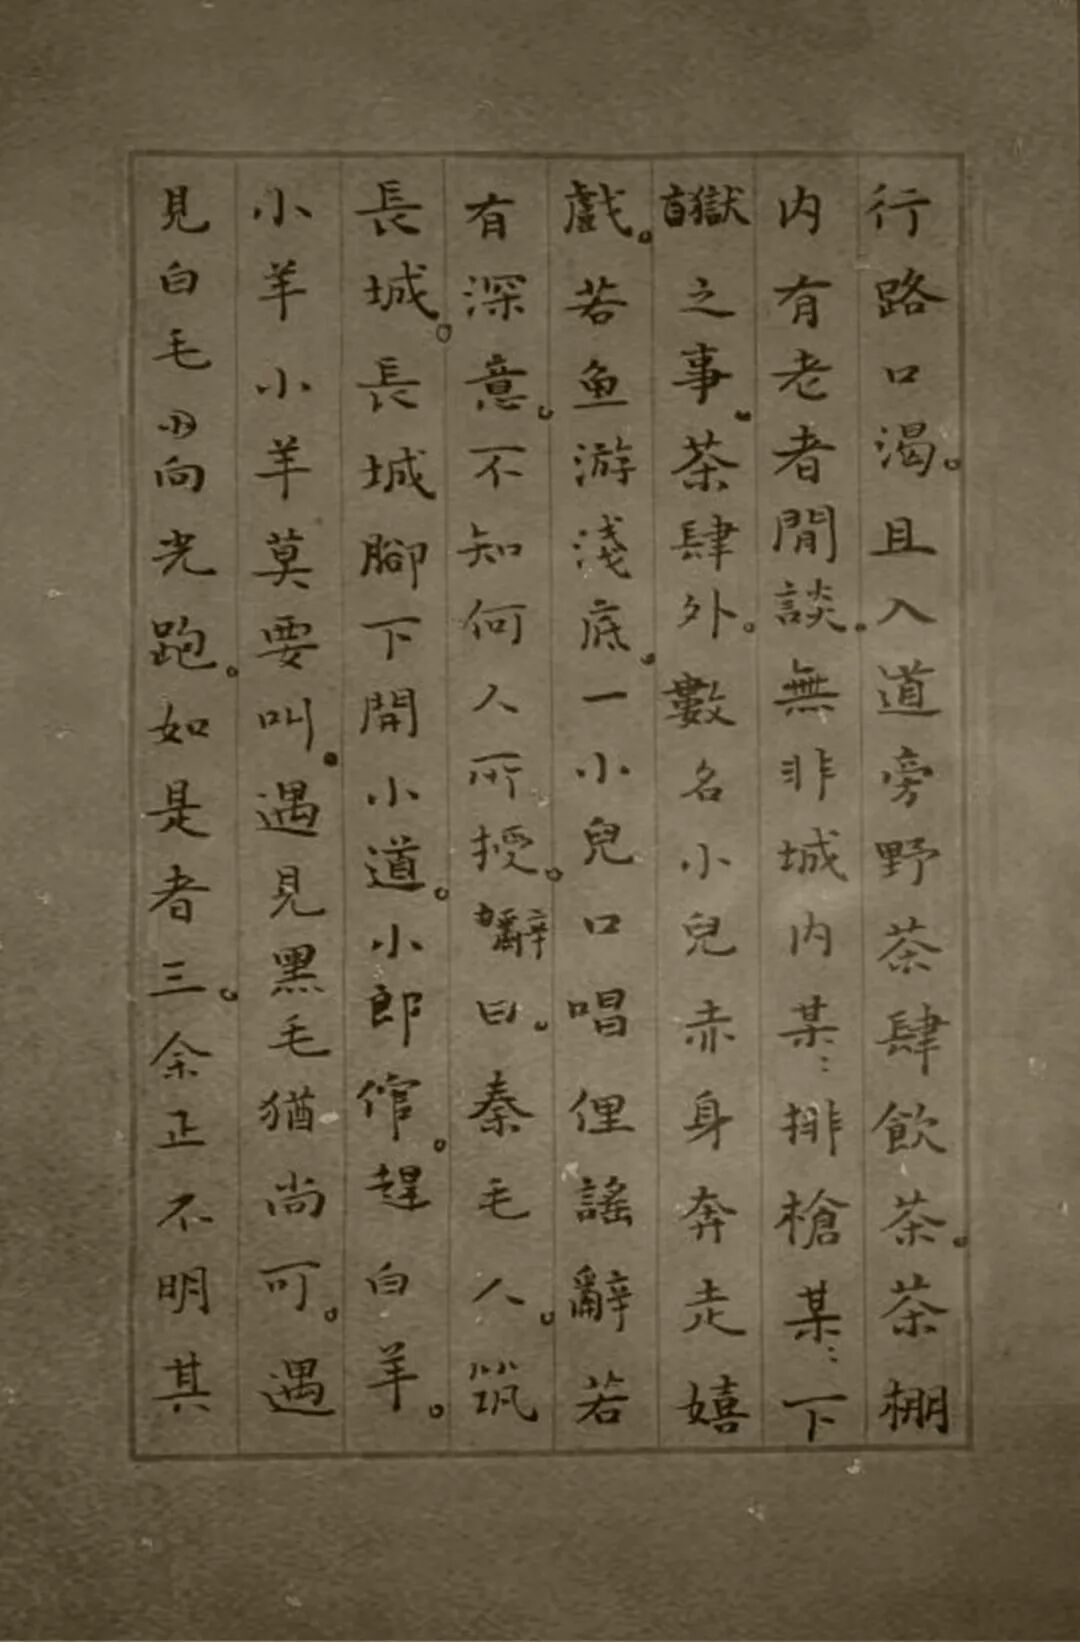 行路口渴。且入道旁野茶肆飲茶。茶棚
内有老者閒談。無非城内某：排槍某：下
獄之事。茶肆外。數名小兒赤身奔走嬉
戲。若鱼游淺底。一小兒口唱俚謠辭若
有深意。不知何人所授。辭曰。秦毛人。筑
長城。長城腳下開小道。小郎倌。趕白羊。
小羊小羊莫要叫。遇見黑毛猶尚可。遇
見白毛向光跑。如是者三。余正不明其